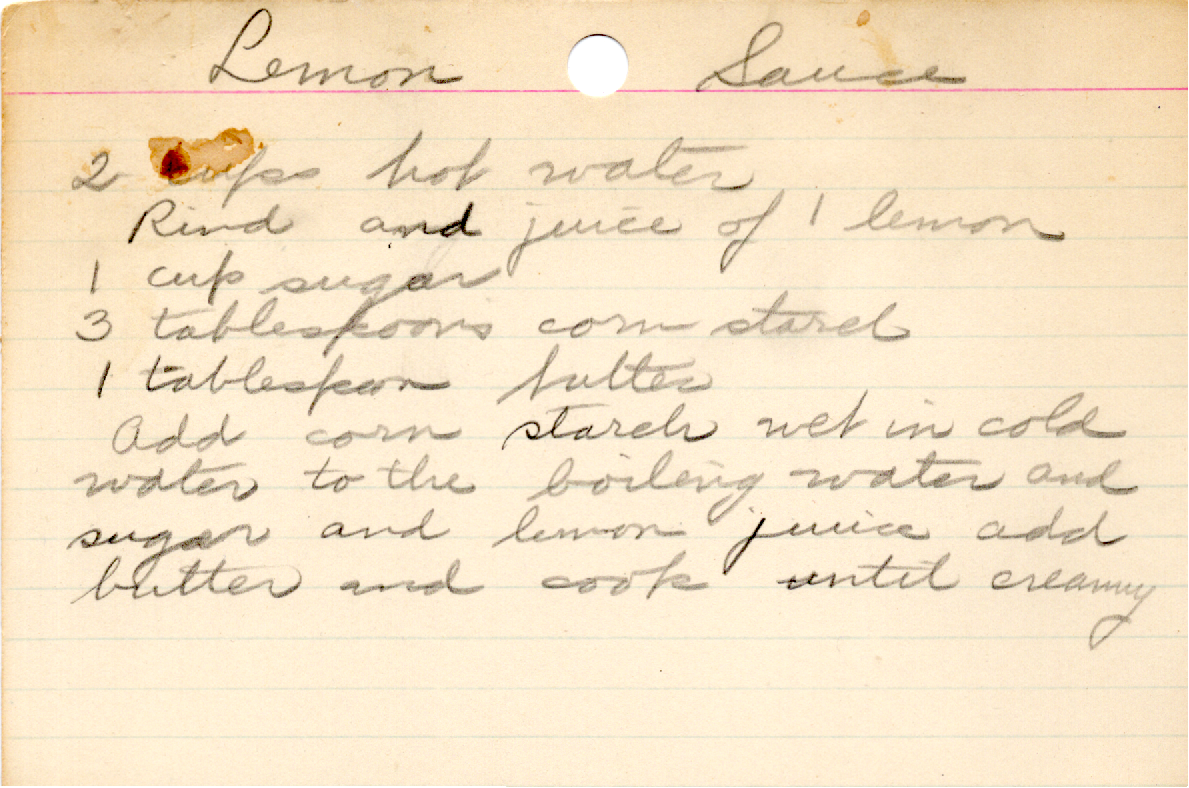 Lemon Sauce
2 cups hot water
Rind and juice of 1 lemon
1 cup sugar
3 tablespoons corn starch
1 tablespoon butter
Add corn starch wet in cold
water to the boiling water and
sugar and lemon juice add
butter and cook until creamy